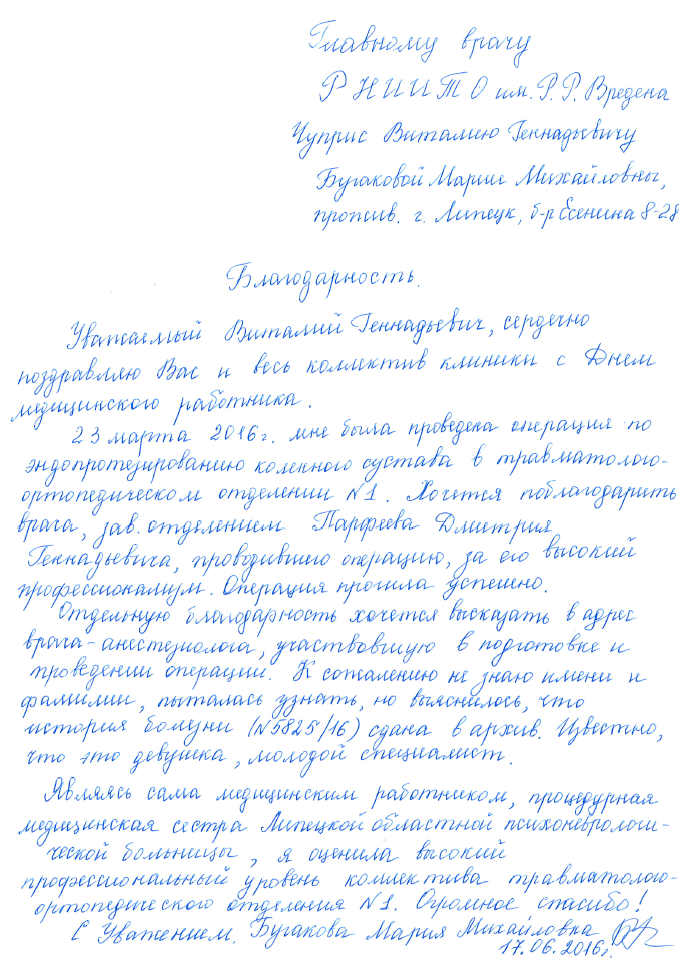 Главному врачу
РНИИТО им. Р.Р. Вредена
Чуприс Виталию Геннадьевичу
Бугаковой Марии Михайловны,
прожив. г. Липецк, б-р Есенина 8-28
Благодарность.
Уважаемый Виталий Геннадьевич, сердечно
поздравляю Вас и весь коллектив клиники с Днем
медицинского работника.
23 марта 2016г. мне была проведена операция по
эндопротезированию коленного сустава в травматолого-
ортопедическом отделении №1. Хочется поблагодарить
врача, зав. отделением Парфеева Дмитрия
Геннадьевича, проводившего операцию, за его высокий
профессионализм. Операция прошла успешно.
Отдельную благодарность хочется высказать в адрес
врача-анестезиолога, участвовавшую в подготовке и
проведении операции. К сожалению не знаю имени и
фамилии, пыталась узнать, но выяснилось, что
история болезни (N5825/16) сдана в архив. Известно,
что это девушка, молодой специалист.
Являясь сама медицинским работником, процедурная
медицинская сестра Липецкой областной психоневрологи-
ческой больницы, я оценила высокий
профессиональный уровень коллектива травматолого-
ортопедического отделения №1. Огромное спасибо!
С Уважением, Бугакова Мария Михайловна
17.06.2016г.